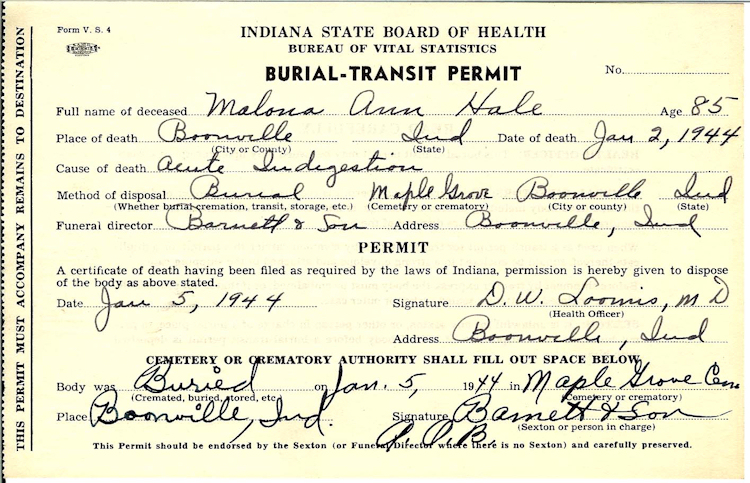 Form V. S. 4
INDIANA STATE BOARD OF HEALTH
BUREAU OF VITAL STATISTICS
BURIAL-TRANSIT PERMIT
No.
Full name of deceased Malona Ann Hale Age 85
Place of death Boonville Ind Date of death Jan 2, 1944
(City or County) (State)
Cause of death Acute Indigestion
Method of disposal Burial Maple Grove Boonville Ind
(Whether burial, cremation, transit, storage, etc.) (Cemetery or crematory) (City or county) (State)
Funeral director Barnett & Son Address Boonville, Ind
PERMIT
A certificate of death having been filed as required by the laws of Indiana, permission is hereby given to dispose
of the body as above stated.
Date Jan 5, 1944 Signature D. W. Loomis, M D
(Health Officer)
Address Boonville, Ind
CEMETERY OR CREMATORY AUTHORITY SHALL FILL OUT SPACE BELOW
Body was Buried on Jan. 5, 1944 in Maple Grove Cem
(Cremated, buried, stored, etc. (Cemetery or crematory)
Place Boonville, Ind. Signature Barnett & Son
(Sexton or person in charge)
P. P. B
This Permit should be endorsed by the Sexton (or Funeral Director where there is no Sexton) and carefully preserved.
THIS PERMIT MUST ACCOMPANY REMAINS TO DESTINATION